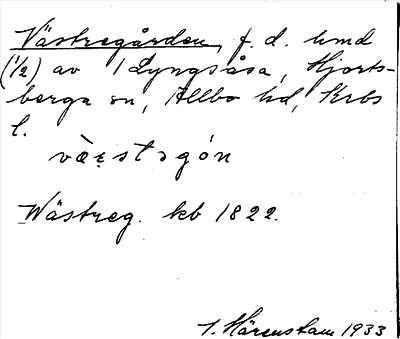 Västregården, f. d. hmd
(1/2) av 1 Lyngsåsa, Hjorts-
berga sn, Allbo hd, Krbs
l.
væ̀stəgón
Wästreg. kb 1822.
J. Härenstam 1933